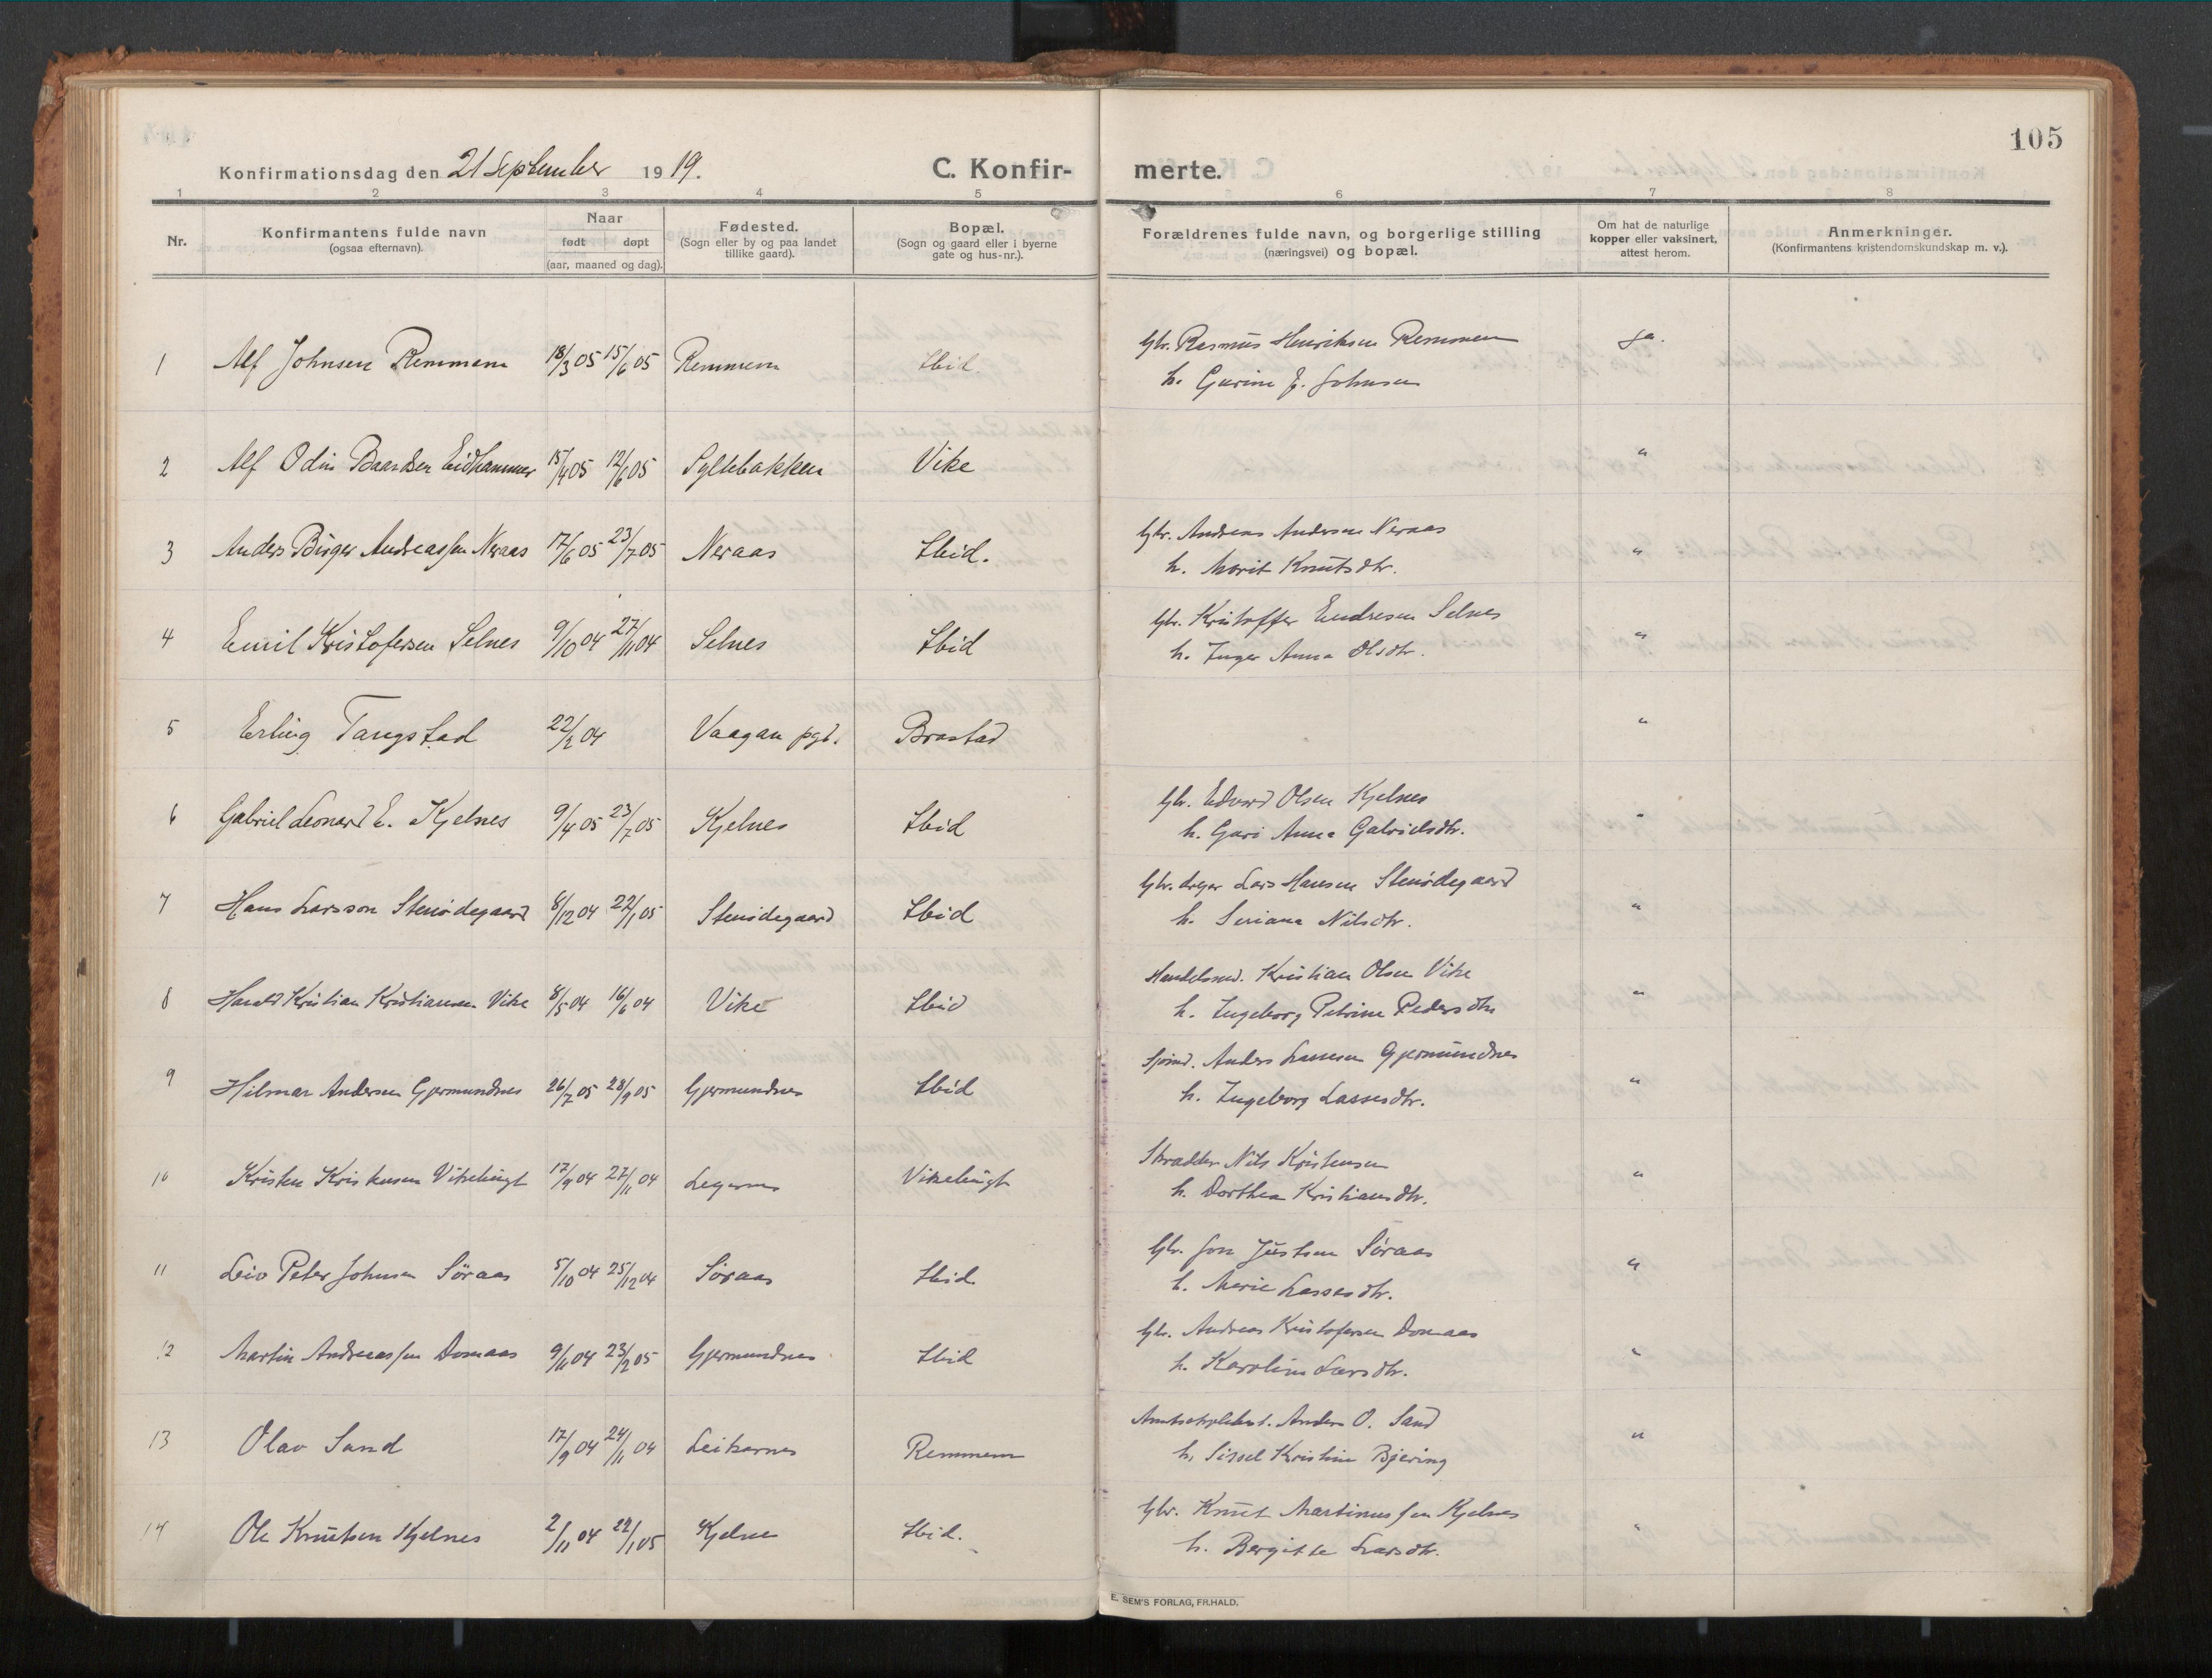 105
Konfirmationsdag den 21 September 1919.
C. Konfir-merte.
1 2 3 4 5 6 7 8
Nr.
Konfirmantens fulde navn
(ogsaa efternavn).
Naar
født døpt
(aar, maaned og dag).
Fødested.
(Sogn eller by og paa landet
tillike gaard).
Bopæl.
(Sogn og gaard eller i byerne
gate og hus-nr.).
Forældrenes fulde navn, og borgerlige stilling
(næringsvei) og bopæl.
Om hat de naturlige
kopper eller vaksinert,
attest herom.
Anmerkninger.
(Konfirmantens kristendomskundskap m. v.).
1 Alf Johnsen Remmem 18/3 05 15/6 05 Remmem Ibid. Gbr. Rasmus Henriksen Remmem ja.
h. Gurine J. Johnsen
2 Alf Odin Baardsen Eidhammer 15/4 05 12/6 05 Syltebakken Vike "
3 Anders Birger Andreassen Neraas 17/6 05 23/7 05 Neraas Ibid. Gbr. Andreas Andersen Neraas "
h. Marit Knutsdtr.
4 Emil Kristofersen Selnes 9/10 04 27/11 04 Selnes Ibid Gbr. Kristoffer Endresen Selnes "
h. Inger Anna Olsdtr.
5 Erling Tangstad 22/2 04 Vaagan pgd. Brastad "
6 Gabriel Leonard E. Kjelnes 9/4 05 23/7 05 Kjelnes Ibid Gbr. Edvard Olsen Kjelnes "
h. Guri Anna Gabrielsdtr.
7 Hans Larsson Stenødegaard 8/12 04 22/1 05 Stenødegaard Ibid Gbr. Lars Hansen Stenødegaard "
h. Seriana Nilsdtr.
8 Harald Kristian Kristiansen Vike 8/5 04 16/6 04 Vike Ibid Handelsmd. Kristian Olsen Vike "
h. Ingeborg Petrine Pedersdtr
9 Hilmar Andersen Gjermundnes 26/7 05 28/9 05 Gjermundnes Ibid Sjømd. Anders Larssen Gjermundnes "
h. Ingeborg Lassesdtr.
10 Kristen Kristensen Vikebugt 17/9 04 27/11 04 Legernes Vikebugt Skrædder Nils Kristensen "
h. Dorthea Kristiansdtr.
11 Leiv Peter Johnsen Söraas 5/10 04 25/12 04 Söraas Ibid. Gbr. Jon Justsen Söraas "
h. Marie Lassesdtr.
12 Martin Andreassen Domaas 9/11 04 23/2 05 Gjermundnes Ibid Gbr. Andreas Kristofersen Domaas "
h. Karoline Larsdtr.
13 Olav Sand 17/9 04 24/11 04 Leikarnes Remmem Anders O. Sand "
h. Sissel Kristine Bjering
14 Ole Knutsen Kjelnes 2/11 04 22/1 05 Kjelnes Ibid. Gbr. Knut Martinussen Kjelnes "
h. Bergitte Larsdtr.
E. SEM'S FORLAG, FR.HALD.